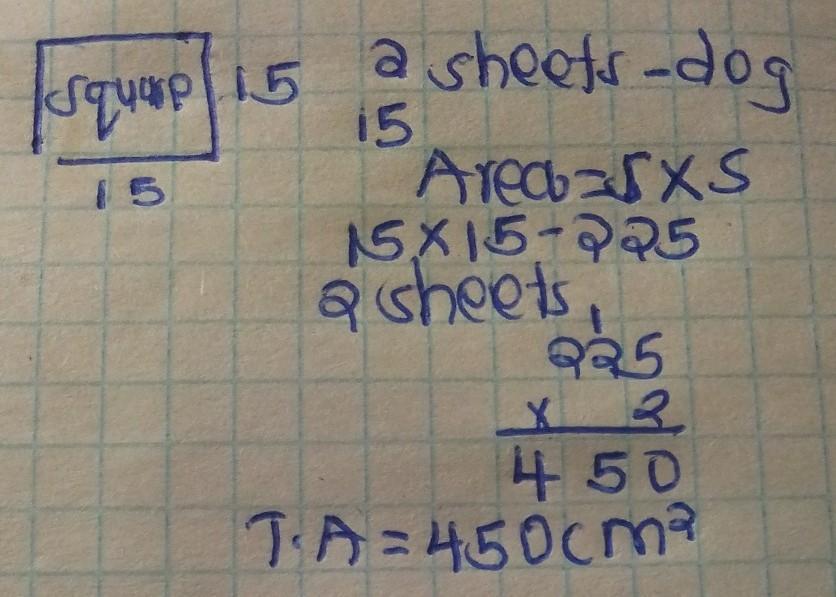 square 15
15
2 sheets - dog
15
Area = S x S
15 x 15 - 225
2 sheets,
1
225
x 2
450
T.A = 450cm²